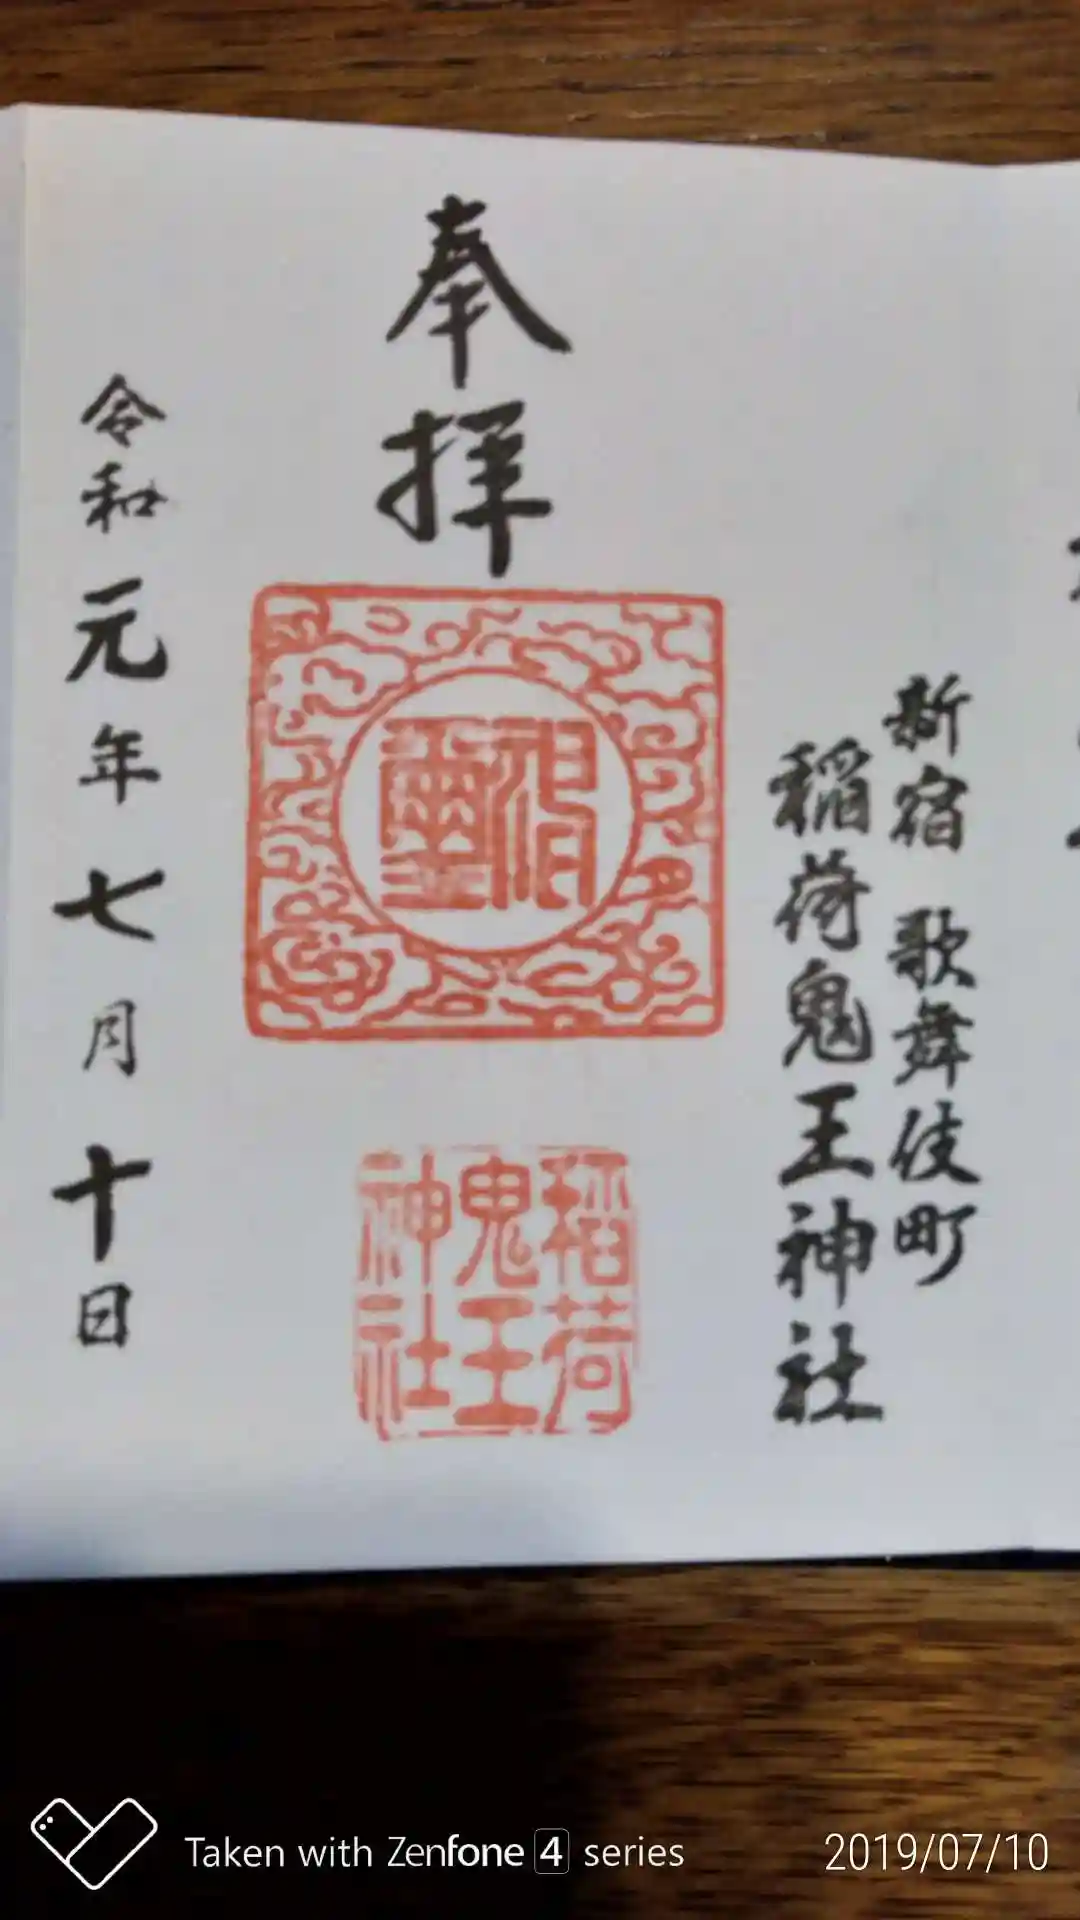 新宿 歌舞伎町
稲荷鬼王神社
奉拝
稲荷
鬼王
神社
令和元年七月十日
Taken with Zenfone 4 series
2019/07/10